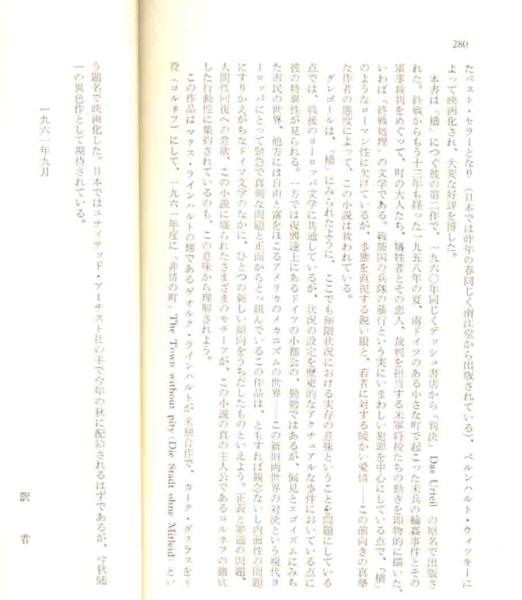 280
たベスト・セラーとなり（日本では昨年の春同じく南江堂から出版されている）、ベルンハルト・ウィッキーに
よって映画化され、大変な好評を博した。
本書は「橋」につぐ彼の第二作で、一九六〇年同じくデッシュ書店から「判決」Das Urteil の原名で出版さ
れた。終戦からもう十三年も経った一九五八年の夏、南ドイツのある小さな町で起こった米兵の輪姦事件とその
軍事裁判をめぐって、町の大人たち、犠牲者とその恋人、裁判を担当する米軍将校たちの動きを即物的に描いた、
いわば「終戦処理」の文学である。戦勝国の兵隊の暴行という実にいまわしい犯罪を中心にしている点で、「橋」
のようなヒューマン性に欠けているが、事態を直視する鋭い眼と、若者に対する暖かい愛情——この前向きの真摯
な作者の態度によって、この小説は救われている。
グレゴールは、「橋」にみられたように、ここでも極限状況における実存の意味ということを問題にしている
点では、戦後のヨーロッパ文学に共通しているが、状況の設定を歴史的なアクチュアルな事件においている点に
彼の特異性が見られる。一方では復興途上にあるドイツの小都会の、勤勉ではあるが、偏見とエゴイズムにみち
た市民の世界、他方には自由と富をほこるアメリカのメカニズムの世界——この新旧両世界の対決という現代ヨ
ーロッパにとって緊急で真剣な問題と正面からとっ組んでいるこの作品は、ともすれば観念ないし内面性の問題
にすりかえがちなドイツ文学のなかに、ひとつの新しい傾向をうちだしたものといえよう。正義と罪過の問題、
人間性回復への意欲、この小説に盛られたさまざまのモチーフが、この小説の真の主人公であるコルネフの徹底
した行動性に集約されているのも、この意味から理解されよう。
この作品はマクス・ラインハルトの甥であるゲオルク・ラインハルトが米独合作で、カーク・ダグラスを主
役（コルネフ）にして、一九六一年度に「非情の町」The Town without pity (Die Stadt ohne Mitleid) とい
う題名で映画化した。日本ではユナイテッド・アーチスト社の手で今年の秋に配給されるはずであるが、今秋随
一の異色作として期待されている。
一九六一年九月
訳 者